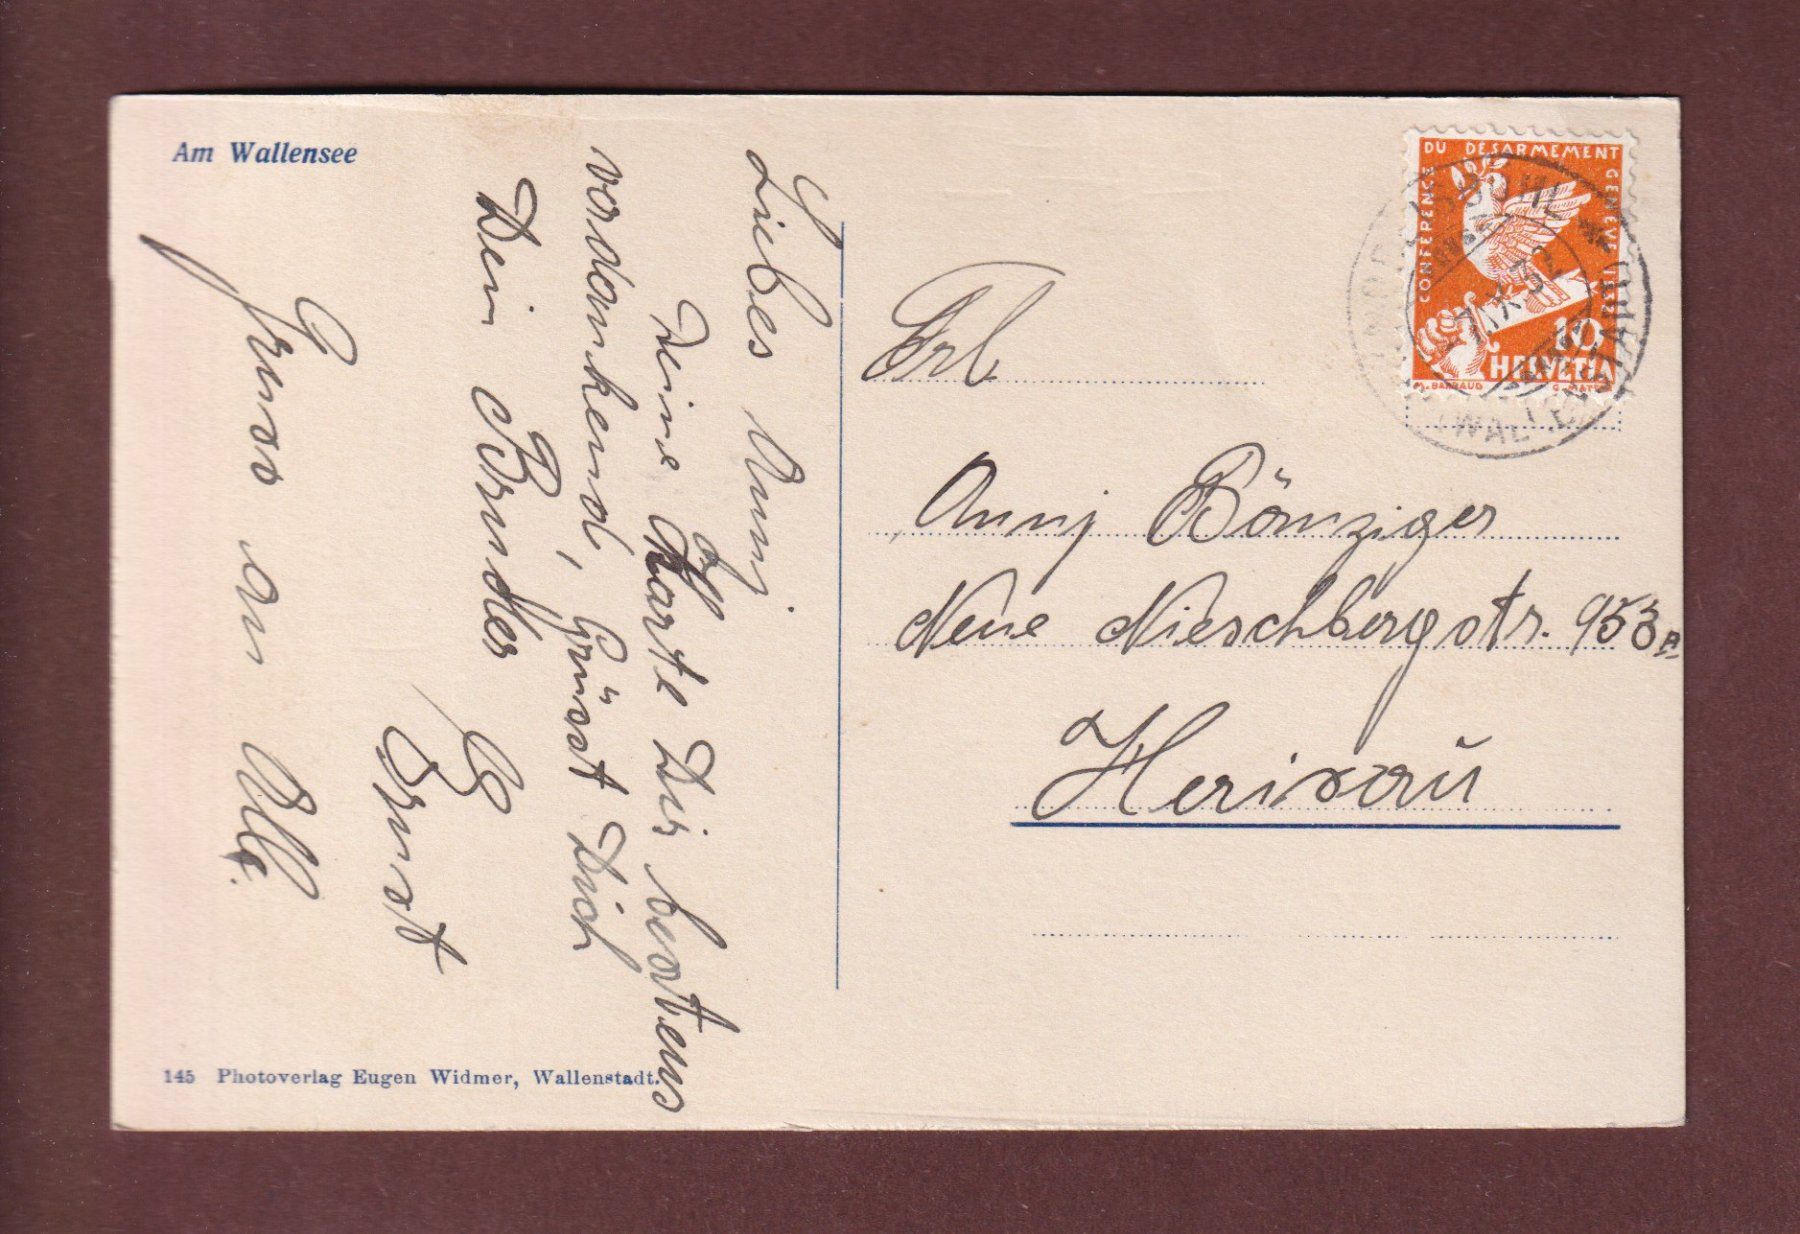 Am Wallensee
Liebes Anny
Deine Karte Dir bestens
verdankend, Grüsst Dich
Dein Bruder
Ernst
Gruss an Alle.
145 Photoverlag Eugen Widmer, Wallenstadt.
CONFERENCE DU DESARMEMENT GENEVE 1932
10
HELVETIA
M. BARRAUD
WALLENSTADT
Frl
Anny Bänziger
Neue Nieschbergstr. 953a
Herisau